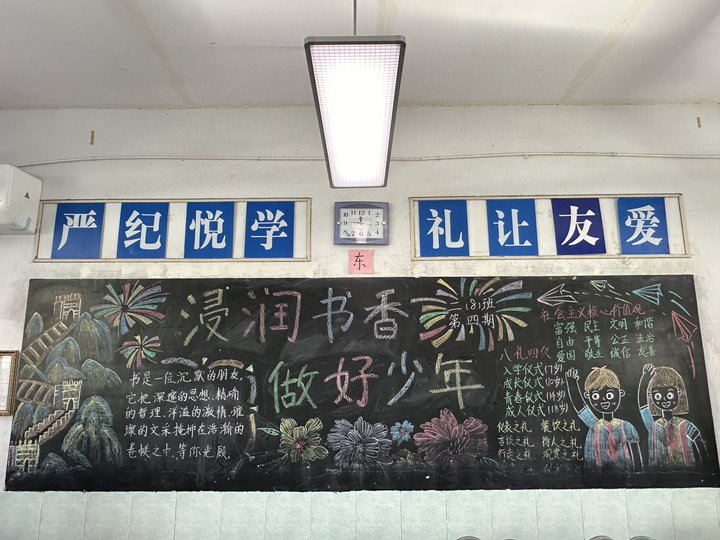 严纪悦学
礼让友爱
东
浸润书香
做好少年
二(8)班
第四期
书是一位沉默的朋友,
它把深邃的思想、精确
的哲理、洋溢的激情、璀
璨的文采掩抑在浩瀚的
卷帙之中,等你光顾
社会主义核心价值观
富强 民主 文明 和谐
自由 平等 公正 法治
爱国 敬业 诚信 友善
八礼四仪
入学仪式(7岁)
成长仪式(10岁)
青春仪式(14岁)
成人仪式(18岁)
仪表之礼 餐饮之礼
言谈之礼 待人之礼
行走之礼 观赏之礼